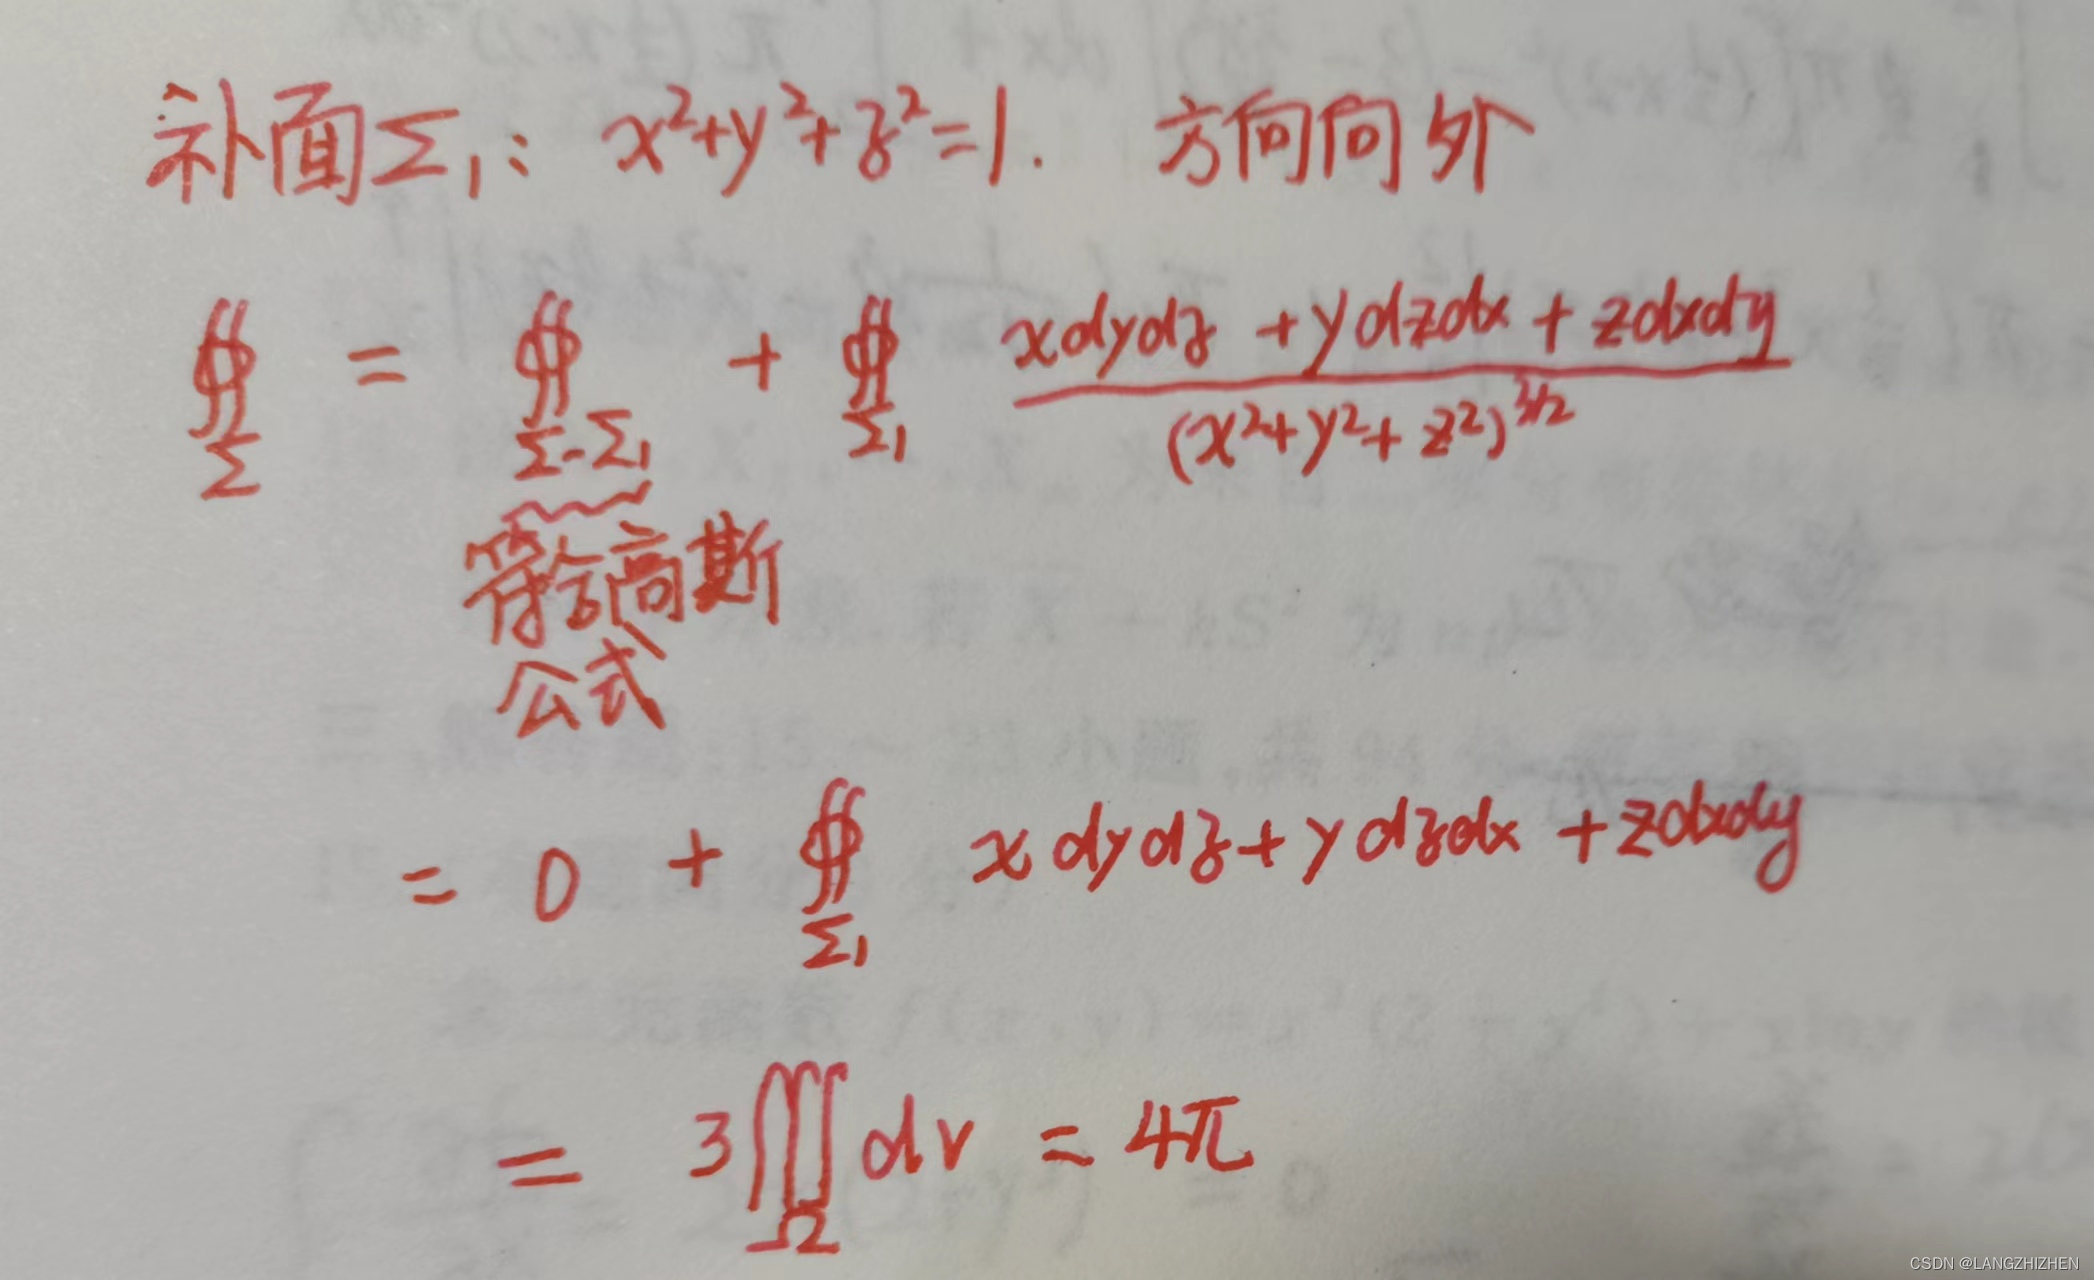 补面Σ₁: x²+y²+z²=1. 方向向外
∯_Σ = ∯_{Σ-Σ₁} + ∯_{Σ₁} \frac{xdydz+ydzdx+zdxdy}{(x²+y²+z²)^{3/2}}
符合高斯
公式
= 0 + ∯_{Σ₁} xdydz+ydzdx+zdxdy
= 3∭_Ω dv = 4π
CSDN @LANGZHIZHEN